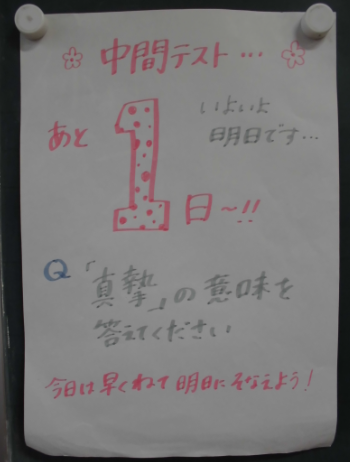 中間テスト…
あと
1
日～!!
いよいよ
明日です…
Q「真摯」の意味を
答えてください
今日は早くねて明日にそなえよう!